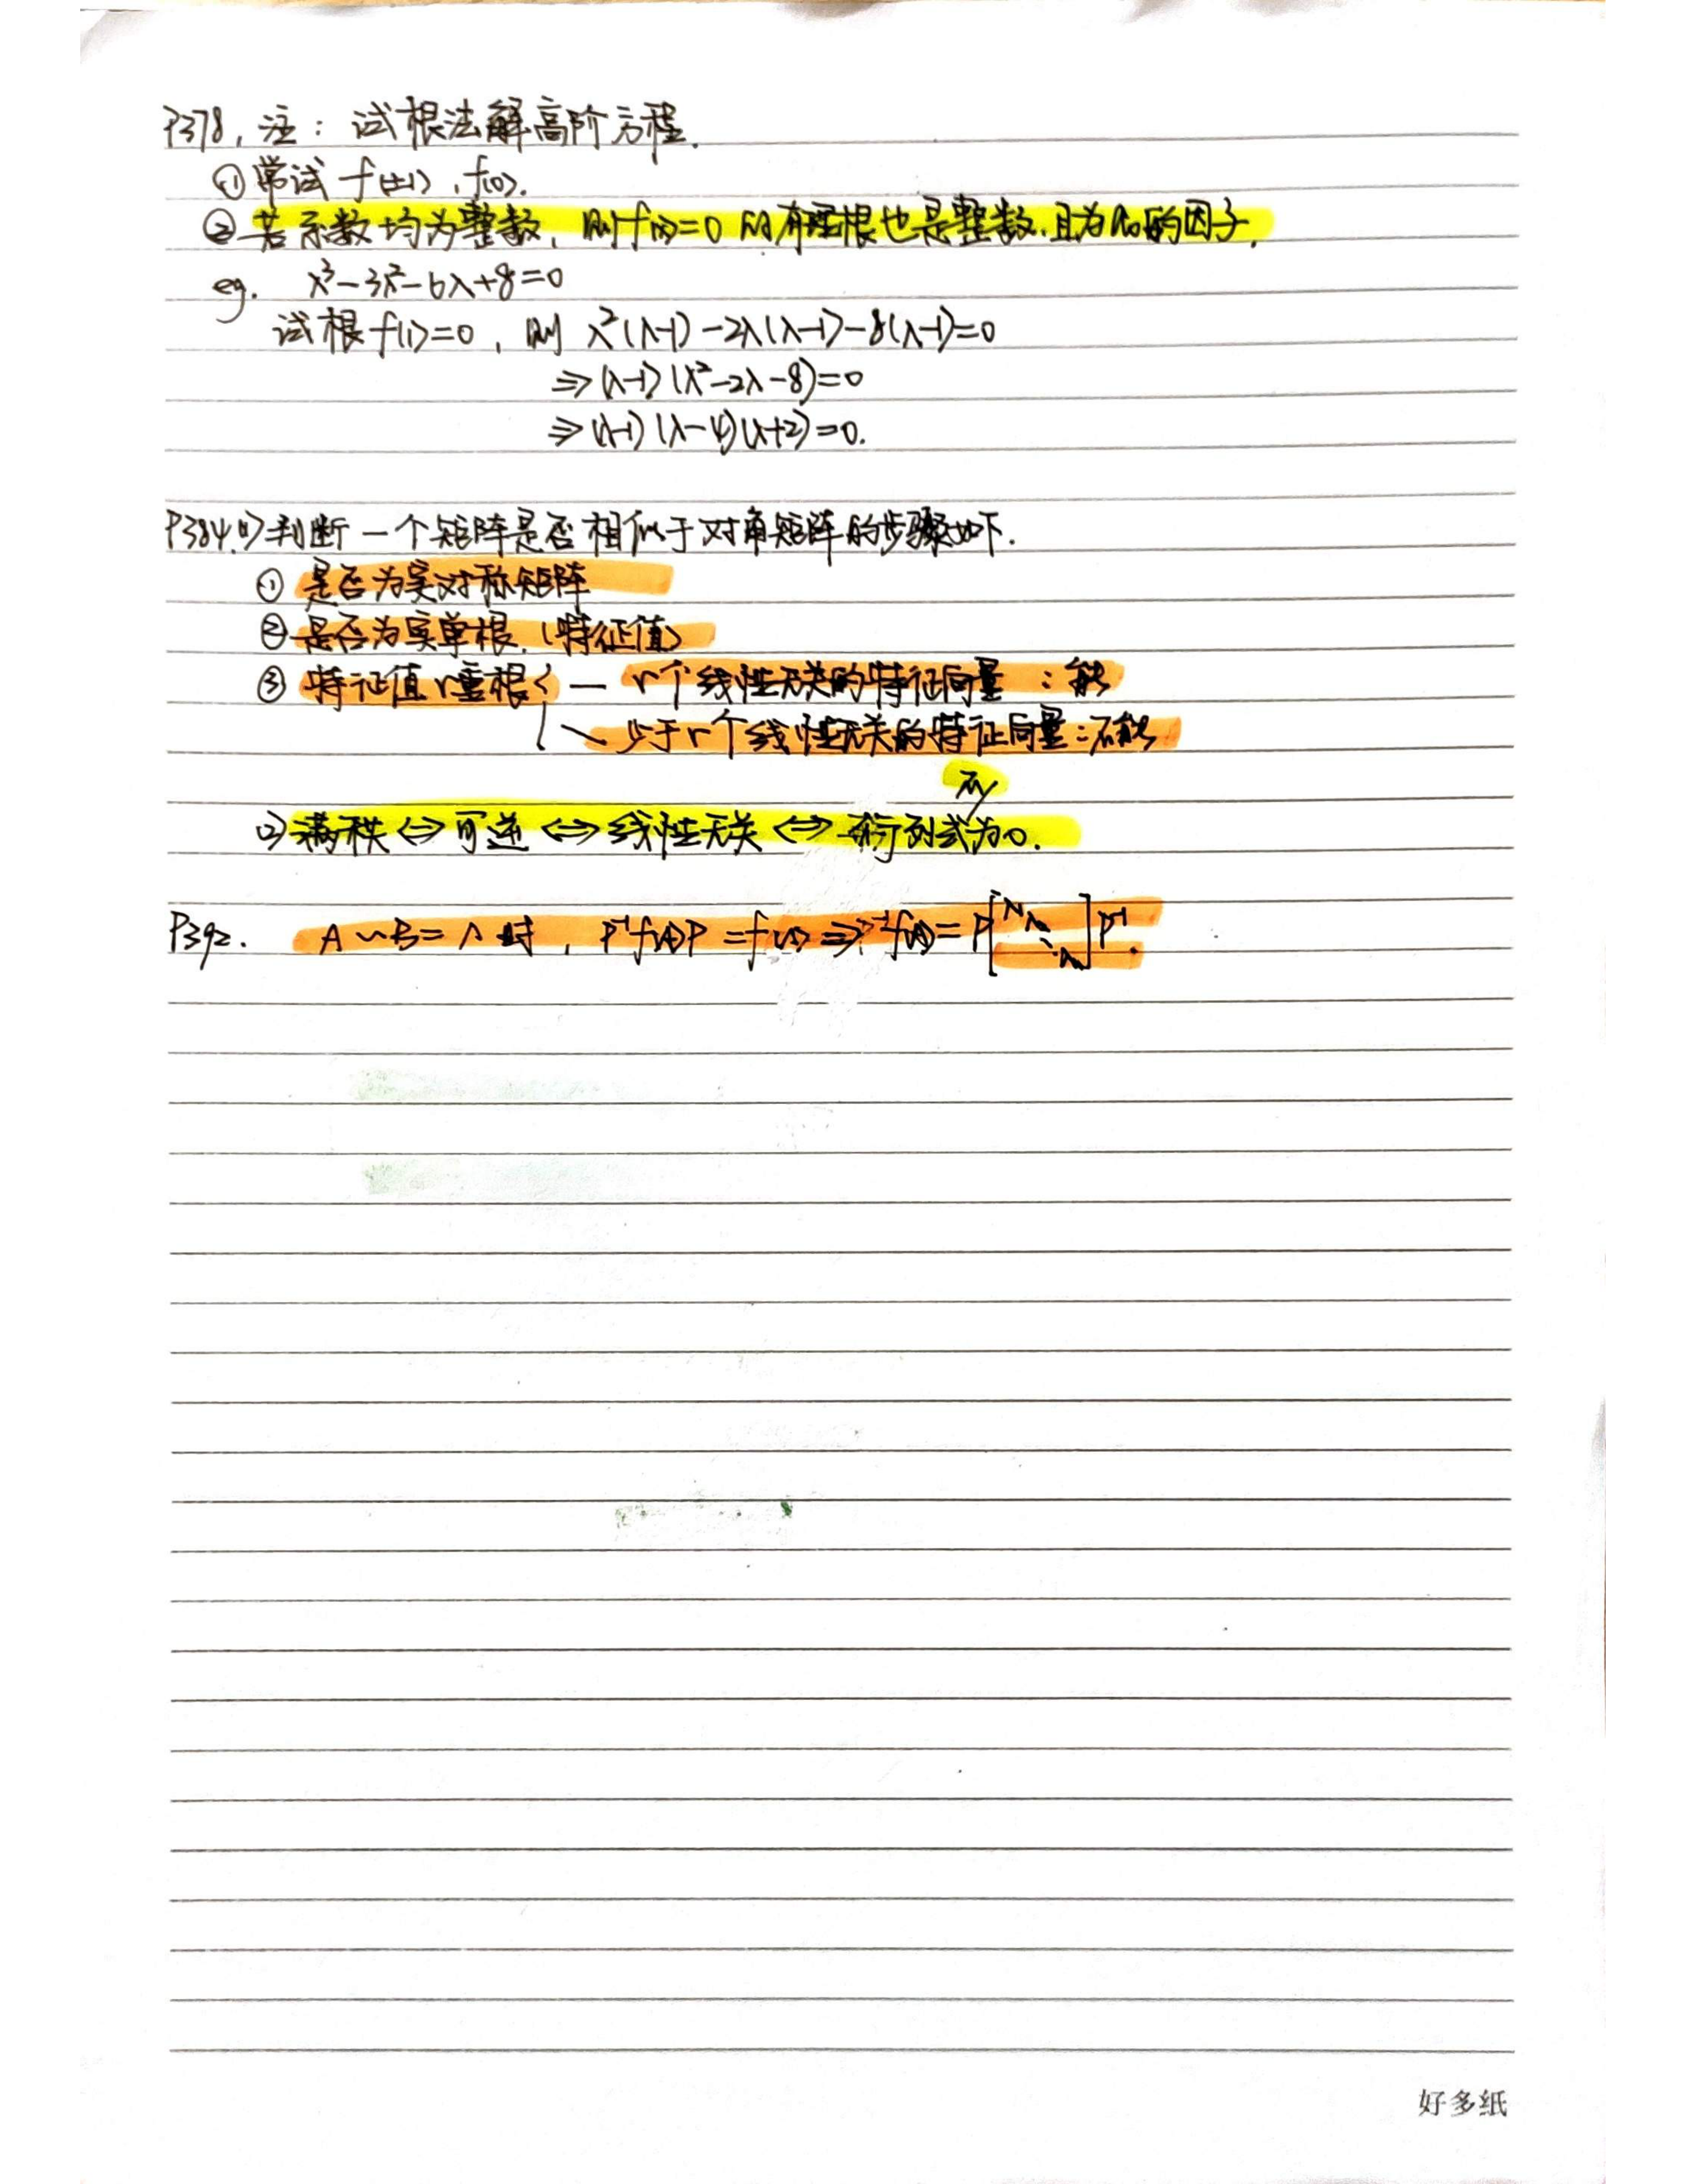 P378, 注: 试根法解高阶方程.
①常试 f(±1), f(0).
②若系数均为整数, 则f(λ)=0的有理根也是整数, 且为a₀的因子.
eg. λ³-3λ²-6λ+8=0
试根f(1)=0, 则 λ²(λ-1)-2λ(λ-1)-8(λ-1)=0
⇒(λ-1)(λ²-2λ-8)=0
⇒(λ-1)(λ-4)(λ+2)=0.
P384.(1)判断一个矩阵是否相似于对角矩阵的步骤如下.
① 是否为实对称矩阵
② 是否为实单根.(特征值)
③ 特征值r重根 — r个线性无关的特征向量: 能
少于r个线性无关的特征向量: 不能
不
(2)满秩⇔可逆⇔线性无关⇔行列式为0.
P392. A~B=Λ时, P⁻¹f(A)P=f(Λ)⇒P⁻¹f(A)=P[λ₁ λ₂ ⋱ λₙ]P⁻¹.
好多纸